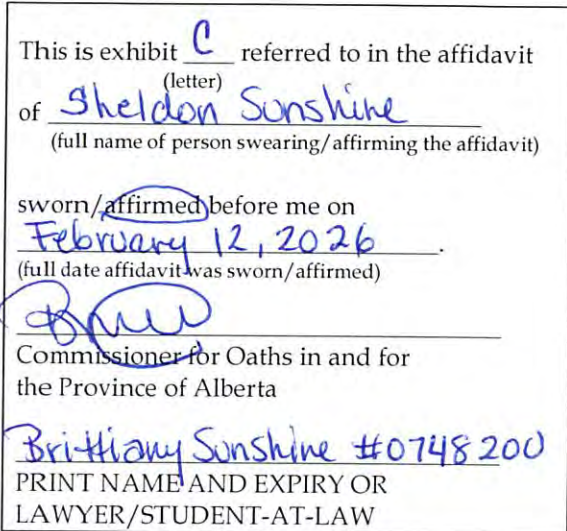 This is exhibit C referred to in the affidavit
(letter)
of Sheldon Sunshine
(full name of person swearing/affirming the affidavit)
sworn/affirmed before me on
February 12, 2026.
(full date affidavit was sworn/affirmed)
Commissioner for Oaths in and for
the Province of Alberta
Brittiany Sunshine #0748200
PRINT NAME AND EXPIRY OR
LAWYER/STUDENT-AT-LAW